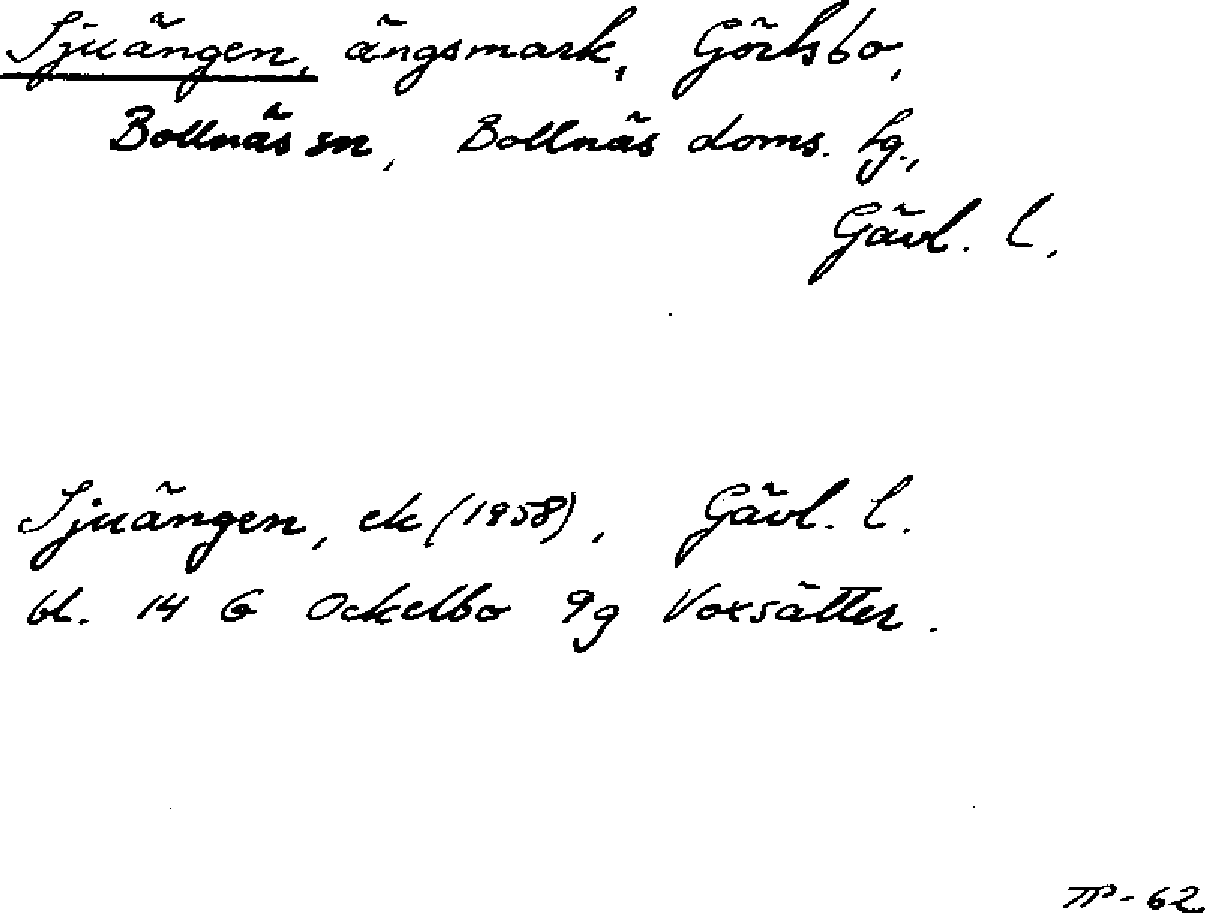 Sjuängen, ängsmark, Görtsbo,
Bollnäs sn, Bollnäs doms. lg.,
Gävl. l.
Sjuängen, ek (1958), Gävl. l.
bl. 14 G Ockelbo 9g Voxsätter.
TP-62